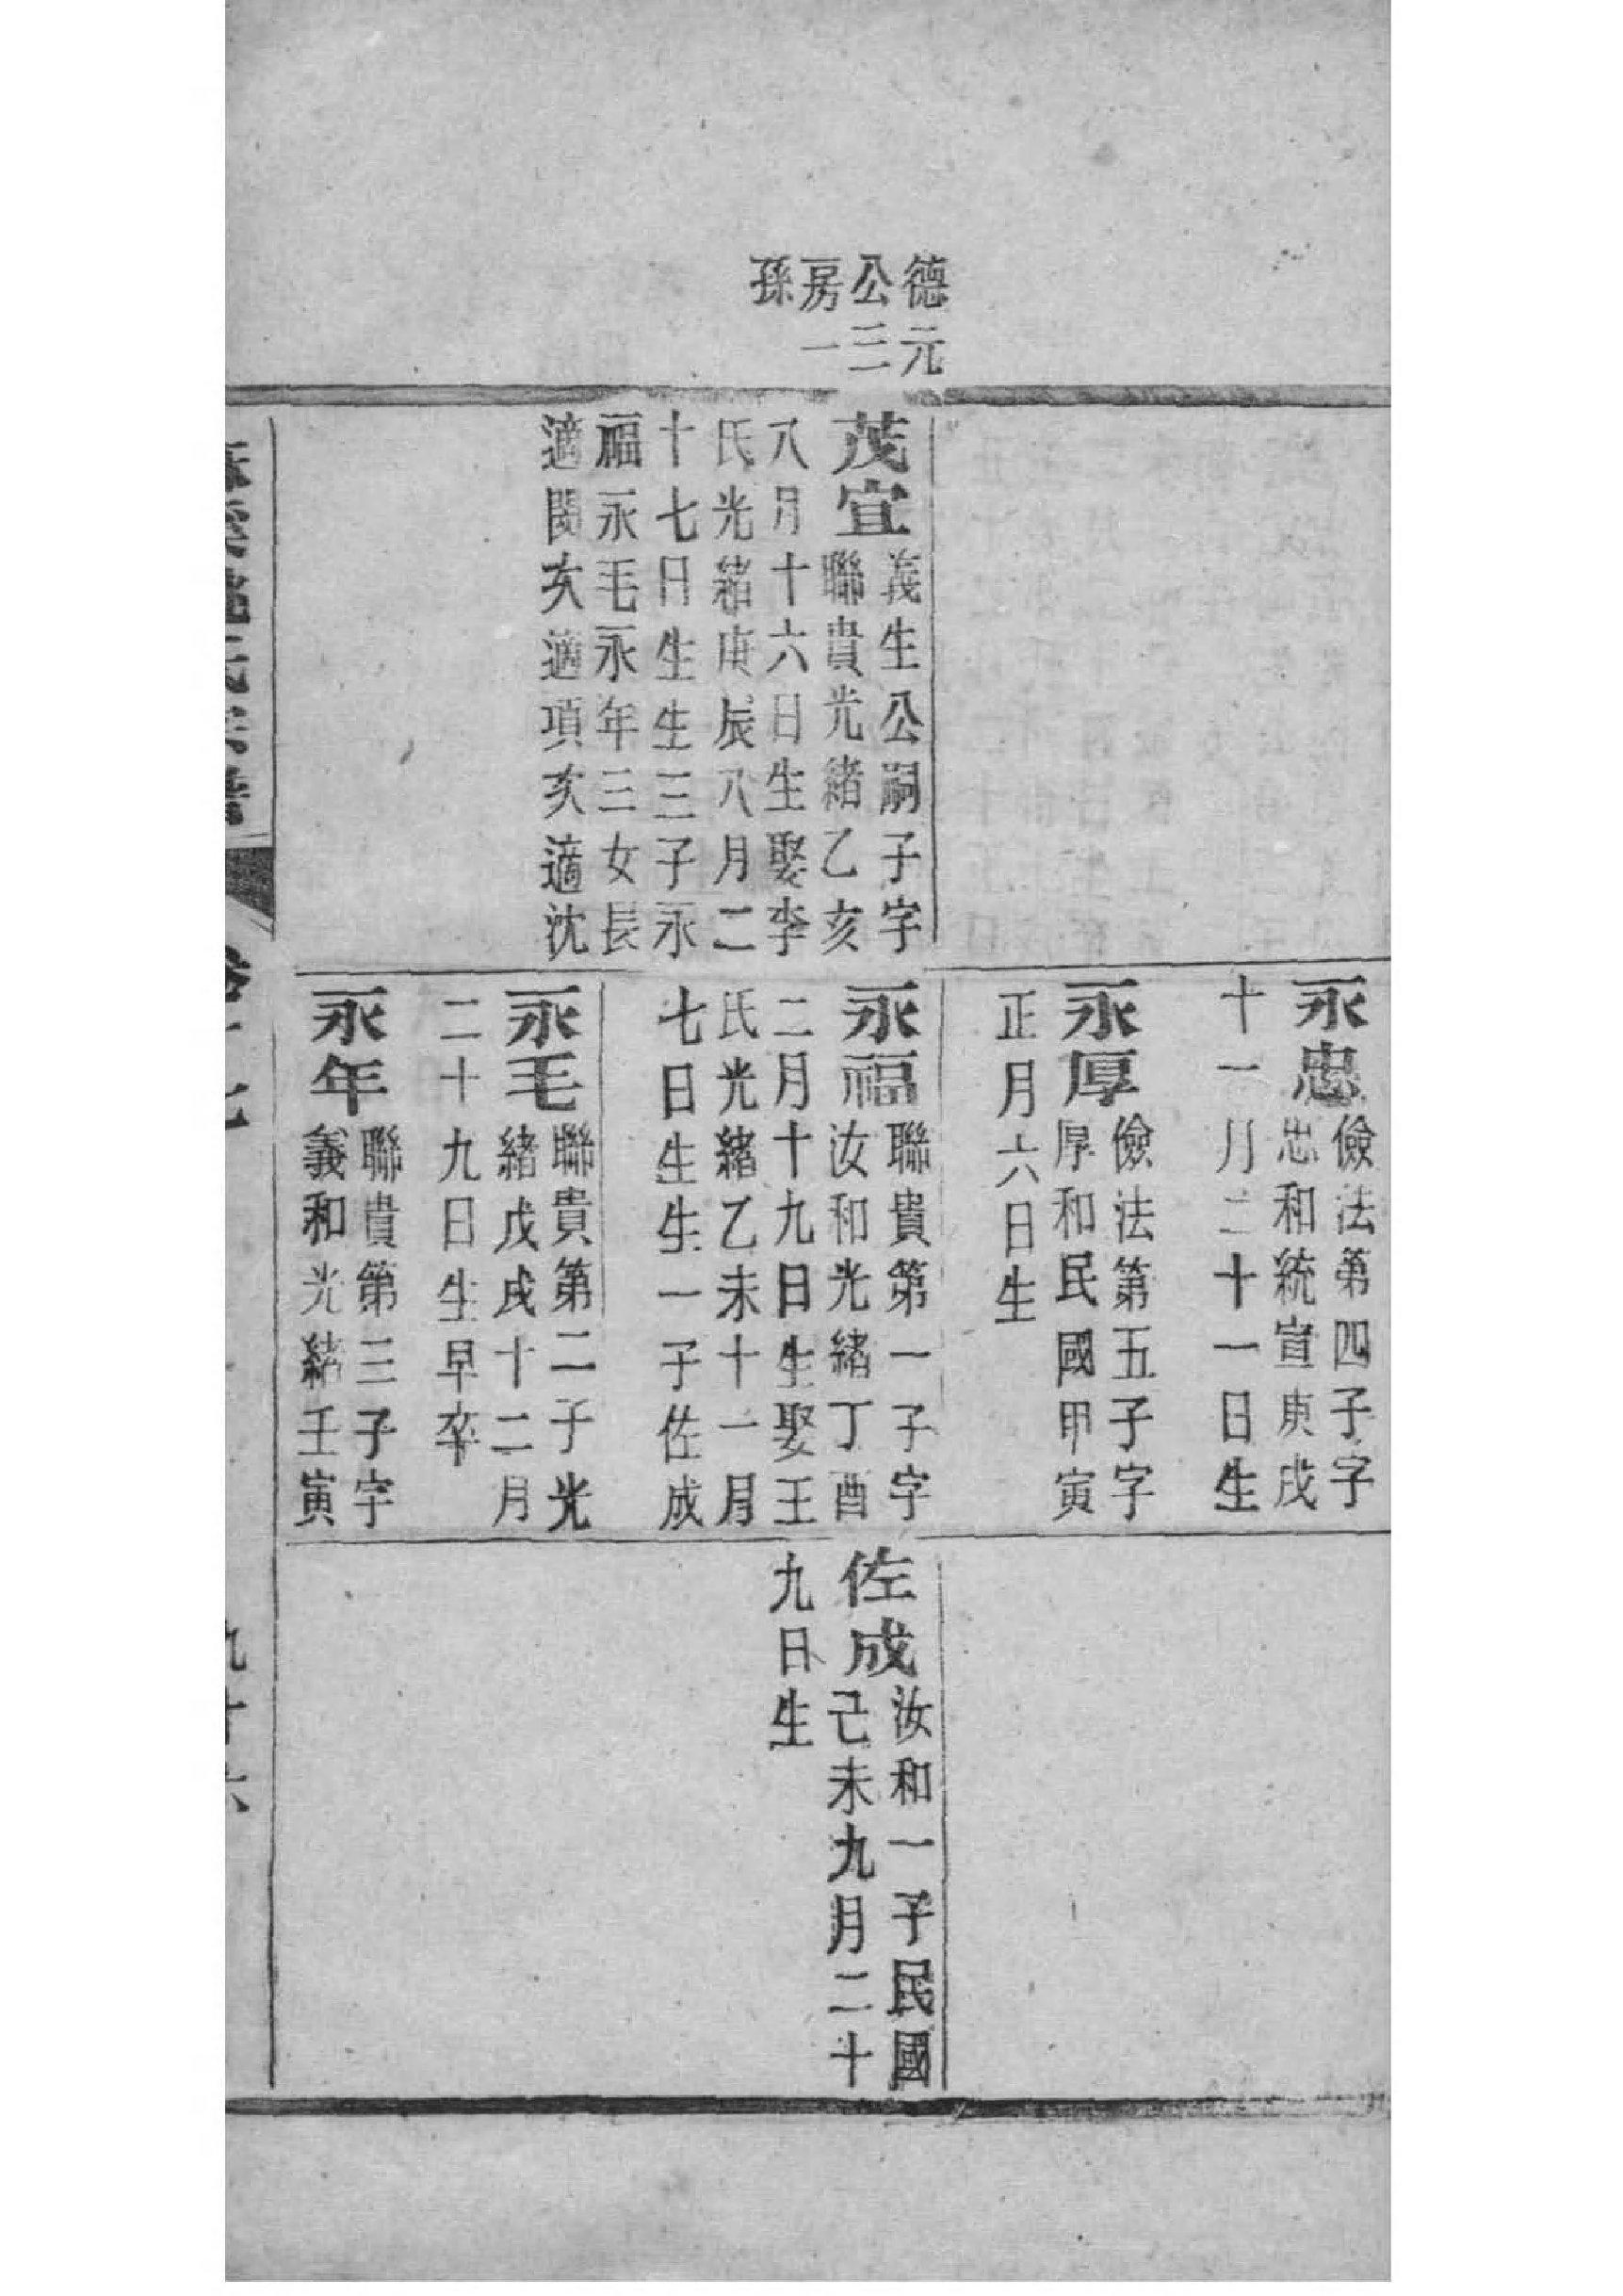 德元
公三
房一
孫
茂宜
義生公嗣子字
聯貴光緒乙亥
八月十六日生娶李
氏光緒庚辰八月二
十七日生生三子永
福永毛永年三女長
適閔次適項次適沈
永忠
儉法第四子字
忠和統宣庚戌
十一月二十一日生
永厚
儉法第五子字
厚和民國甲寅
正月六日生
永福
聯貴第一子字
汝和光緒丁酉
二月十九日生娶王
氏光緒乙未十一月
七日生生一子佐成
永毛
聯貴第二子光
緒戊戌十二月
二十九日生早卒
永年
聯貴第三子字
義和光緒壬寅
佐成
汝和一子民國
己未九月二十
九日生